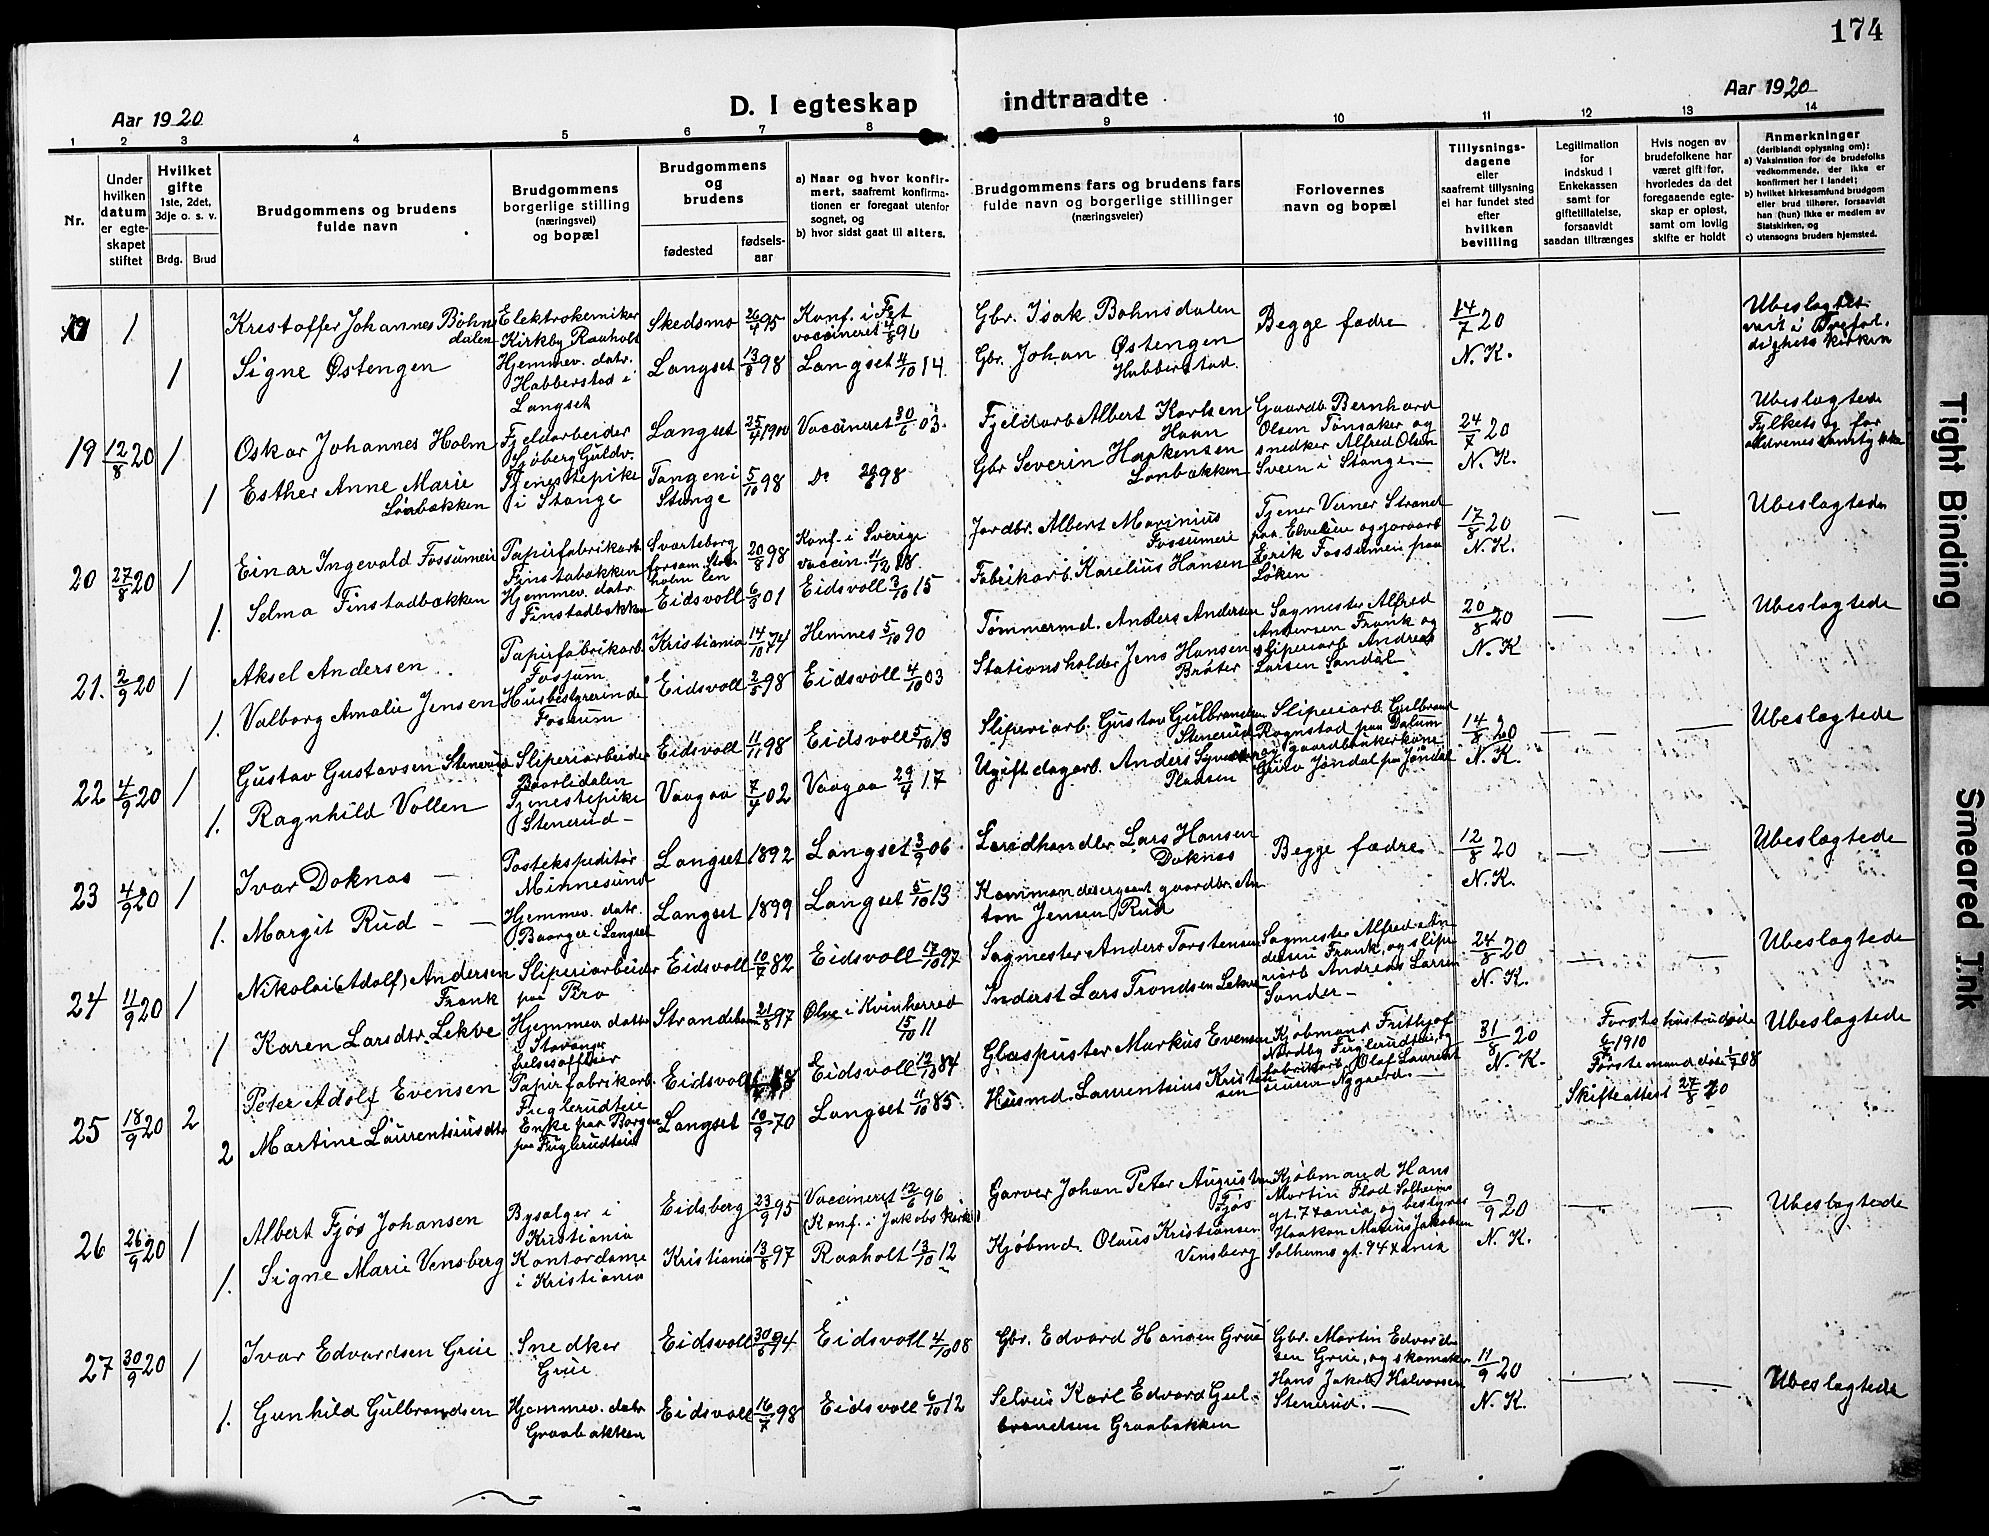 174
Aar 1920
D. I egteskap indtraadte
Aar 1920
1 2 3 4 5 6 7 8 9 10 11 12 13 14
Nr.
Under hvilken datum er egteskapet stiftet
Hvilket gifte 1ste, 2det, 3dje o. s. v.
Brdg. Brud
Brudgommens og brudens fulde navn
Brudgommens borgerlige stilling (næringsvei) og bopæl
Brudgommens og brudens
fødested
fødselsaar
a) Naar og hvor konfirmert, saafremt konfirmationen er foregaat utenfor sognet, og
b) hvor sidst gaat til alters.
Brudgommens fars og brudens fars fulde navn og borgerlige stillinger (næringsveier)
Forlovernes navn og bopæl
Tillysningsdagene eller saafremt tillysning ei har fundet sted efter hvilken bevilling
Legitimation for indskud i Enkekassen samt for giftetillatelse, forsaavidt saadan tiltrænges
Hvis nogen av brudefolkene har været gift før, hvorledes da det foregaaende egteskap er opløst, samt om lovlig skifte er holdt
Anmerkninger (deriblandt oplysning om):
a) Vaksination for de brudefolks vedkommende, der ikke er konfirmert her i landet;
b) hvilket kirkesamfund brudgom eller brud tilhører, forsaavidt han (hun) ikke er medlem av Statskirken, og
c) utensogns bruders hjemsted.
1 Kristoffer Johannes Bøhnsdalen Elektrokemiker Kirkby Raaholt Skedsmo 26/4 95 Konf. i vaccineret Gbr. Isak Bohnsdalen Begge fædre 14/7 20 N. K. Ubeslagtet
1 Signe Østengen Hjemmev. datr. Habberstad i Langset Langset 13/8 98 Langset 4/10 14. Gbr. Johan Østengen Habberstad.
19 12/8 20 1 Oskar Johannes Holm Fjeldarbeider Sjøberg Guldv. Langset 25/4 1900 Vaccineret 30/6 03. Fjeldarb. Albert Karlsen Gaardb. Bernhard Olsen Tønsaker og snedker Alfred Olsen Sveen i Stange. 24/7 20 N. K. Ubeslagtede
1 Esther Anne Marie Lønbakken Tjenestepike i Stange Tangen i Stange 5/10 98 Do 98 Gbr Severin Haakensen Lonbakken
20 27/8 20 1 Einar Ingevald Fossumeie Papirfabrikarb. Finstabakken 20/8 98 Konf. i Sverige vaccin. Jordbr. Albert Marinius Fossumeie Tjener Verner Strand paa og Erik Fossumeie paa Løken 17/8 20 N. K. Ubeslagtede
1. Selma Finstadbakken Hjemmev. datr. Finstadbakken Eidsvoll 6/8 01 Eidsvoll 3/10 15 Fabrikarb. Karelius Hansen
21. 2/9 20 1 Aksel Andersen Papirfabrikarb. Fossum Kristiania 14/10 74 Hemnes 5/10 90 Tømmermd. Anders Andersen Sagmester Alfred Andersen Frank og sliperiarb Andreas Larsen Sandal 20/8 20 N. K Ubeslagtede
1. Valborg Amalie Jensen Husbestyrerinde Fossum Eidsvoll 2/5 98 Eidsvoll 4/10 03 Stationsholder Jens Hansen Bråter
22 4/9 20 1 Gustav Gustavsen Stenerud Sliperiarbeider Baarlidalen Eidsvoll 11/11 98 Eidsvoll 5/10 13 Sliperiarb. Gustav Gulbrandsen Stenerud Sliperiarb. Gulbrand Rognstad paa Dalum og gaardbrukerkone Guro Jøndal paa Jøndal 14/8 20 N. K. Ubeslagtede
1. Ragnhild Vollen Tjenestepike Stenerud Vaagaa 7/4 02 Vaagaa 29/4 17 Ugift dagarb. Anders Pladsen
23 4/9 20 1 Ivar Doknas Postekspeditør Minnesund Langset 1892 Langset 3/9 06 Landhandler Lars Hansen Doknas Begge fædre 12/8 20 N. K. Ubeslagtede
1. Margit Rud Hjemmev. datr. Baarger i Langset Langset 1899 Langset 5/10 13 Kommandersergeant gaardbr. Anton Jensen Rud
24 11/9 20 1 Nikolai (Adolf) Andersen Frank Sliperiarbeider paa Bro Eidsvoll 10/7 82 Eidsvoll 17/10 97 Sagmester Anders Torstensen Sagmester Alfred Andersen Frank, og sliperiarb Andreas Larsen Sander 24/8 20 N. K. Ubeslagtede
1 Karen Larsdtr. Lekve Hjemmev. datter i Stavanger Strandebarm 21/8 97 Ølve i Kvinherred 15/10 11 Inderst Lars Trondsen Lekve
25 18/9 20 2 Peter Adolf Evensen Papirfabrikarb. Fuglerudteie Eidsvoll Eidsvoll 12/10 84 Glaspuster Markus Evensen Kjøbmand Frithjof Nordby Fuglerudteie, og fabrikarb. Olaf Laurentsiussen Nygaard. 31/8 20 N. K. Første hustru døde 1910 Første mand døde 08 Skifteattest 27/8 20 Ubeslagtede
2 Martine Laurentsiusdtr Enke paa Borgen paa Fuglerudteie Langset 10/9 70 Langset 11/10 85. Husmd. Laurentsius Kristensen
26 26/9 20 1 Albert Fjøs Johansen Bysælger i Kristiania Eidsberg 23/9 95 Vaccineret 12/6 96 (Konf. i Jakobs kirke) Garver Johan Peter Augustsen Fjøs Kjøbmand Hans Martin Flod Solheims gt. 7 xania, og bestyrer Haakon Marius Jakobsen Solheims gt. 94 xania 9/9 20 N. K. Ubeslagtede
1. Signe Marie Vensberg Kontordame i Kristiania Kristiania 13/8 97 Raaholt 13/10 12 Kjøbmd. Olaus Kristiansen Vensberg
27 30/9 20 1 Ivar Edvardsen Grue Snedker Grue Eidsvoll 30/6 94 Eidsvoll 4/10 08 Gbr. Edvard Hansen Grue Gbr. Martin Edvardsen Grue, og skomaker Hans Jakob Halvorsen Stenerud. 11/9 20 N. K. Ubeslagtede
1. Gunhild Gulbrandsen Hjemmev. datr Graabakken Eidsvoll 16/7 98 Eidsvoll 6/10 12 Selveier Karl Edvard Gulbrandsen Graabakken
Tight Binding
Smeared Ink